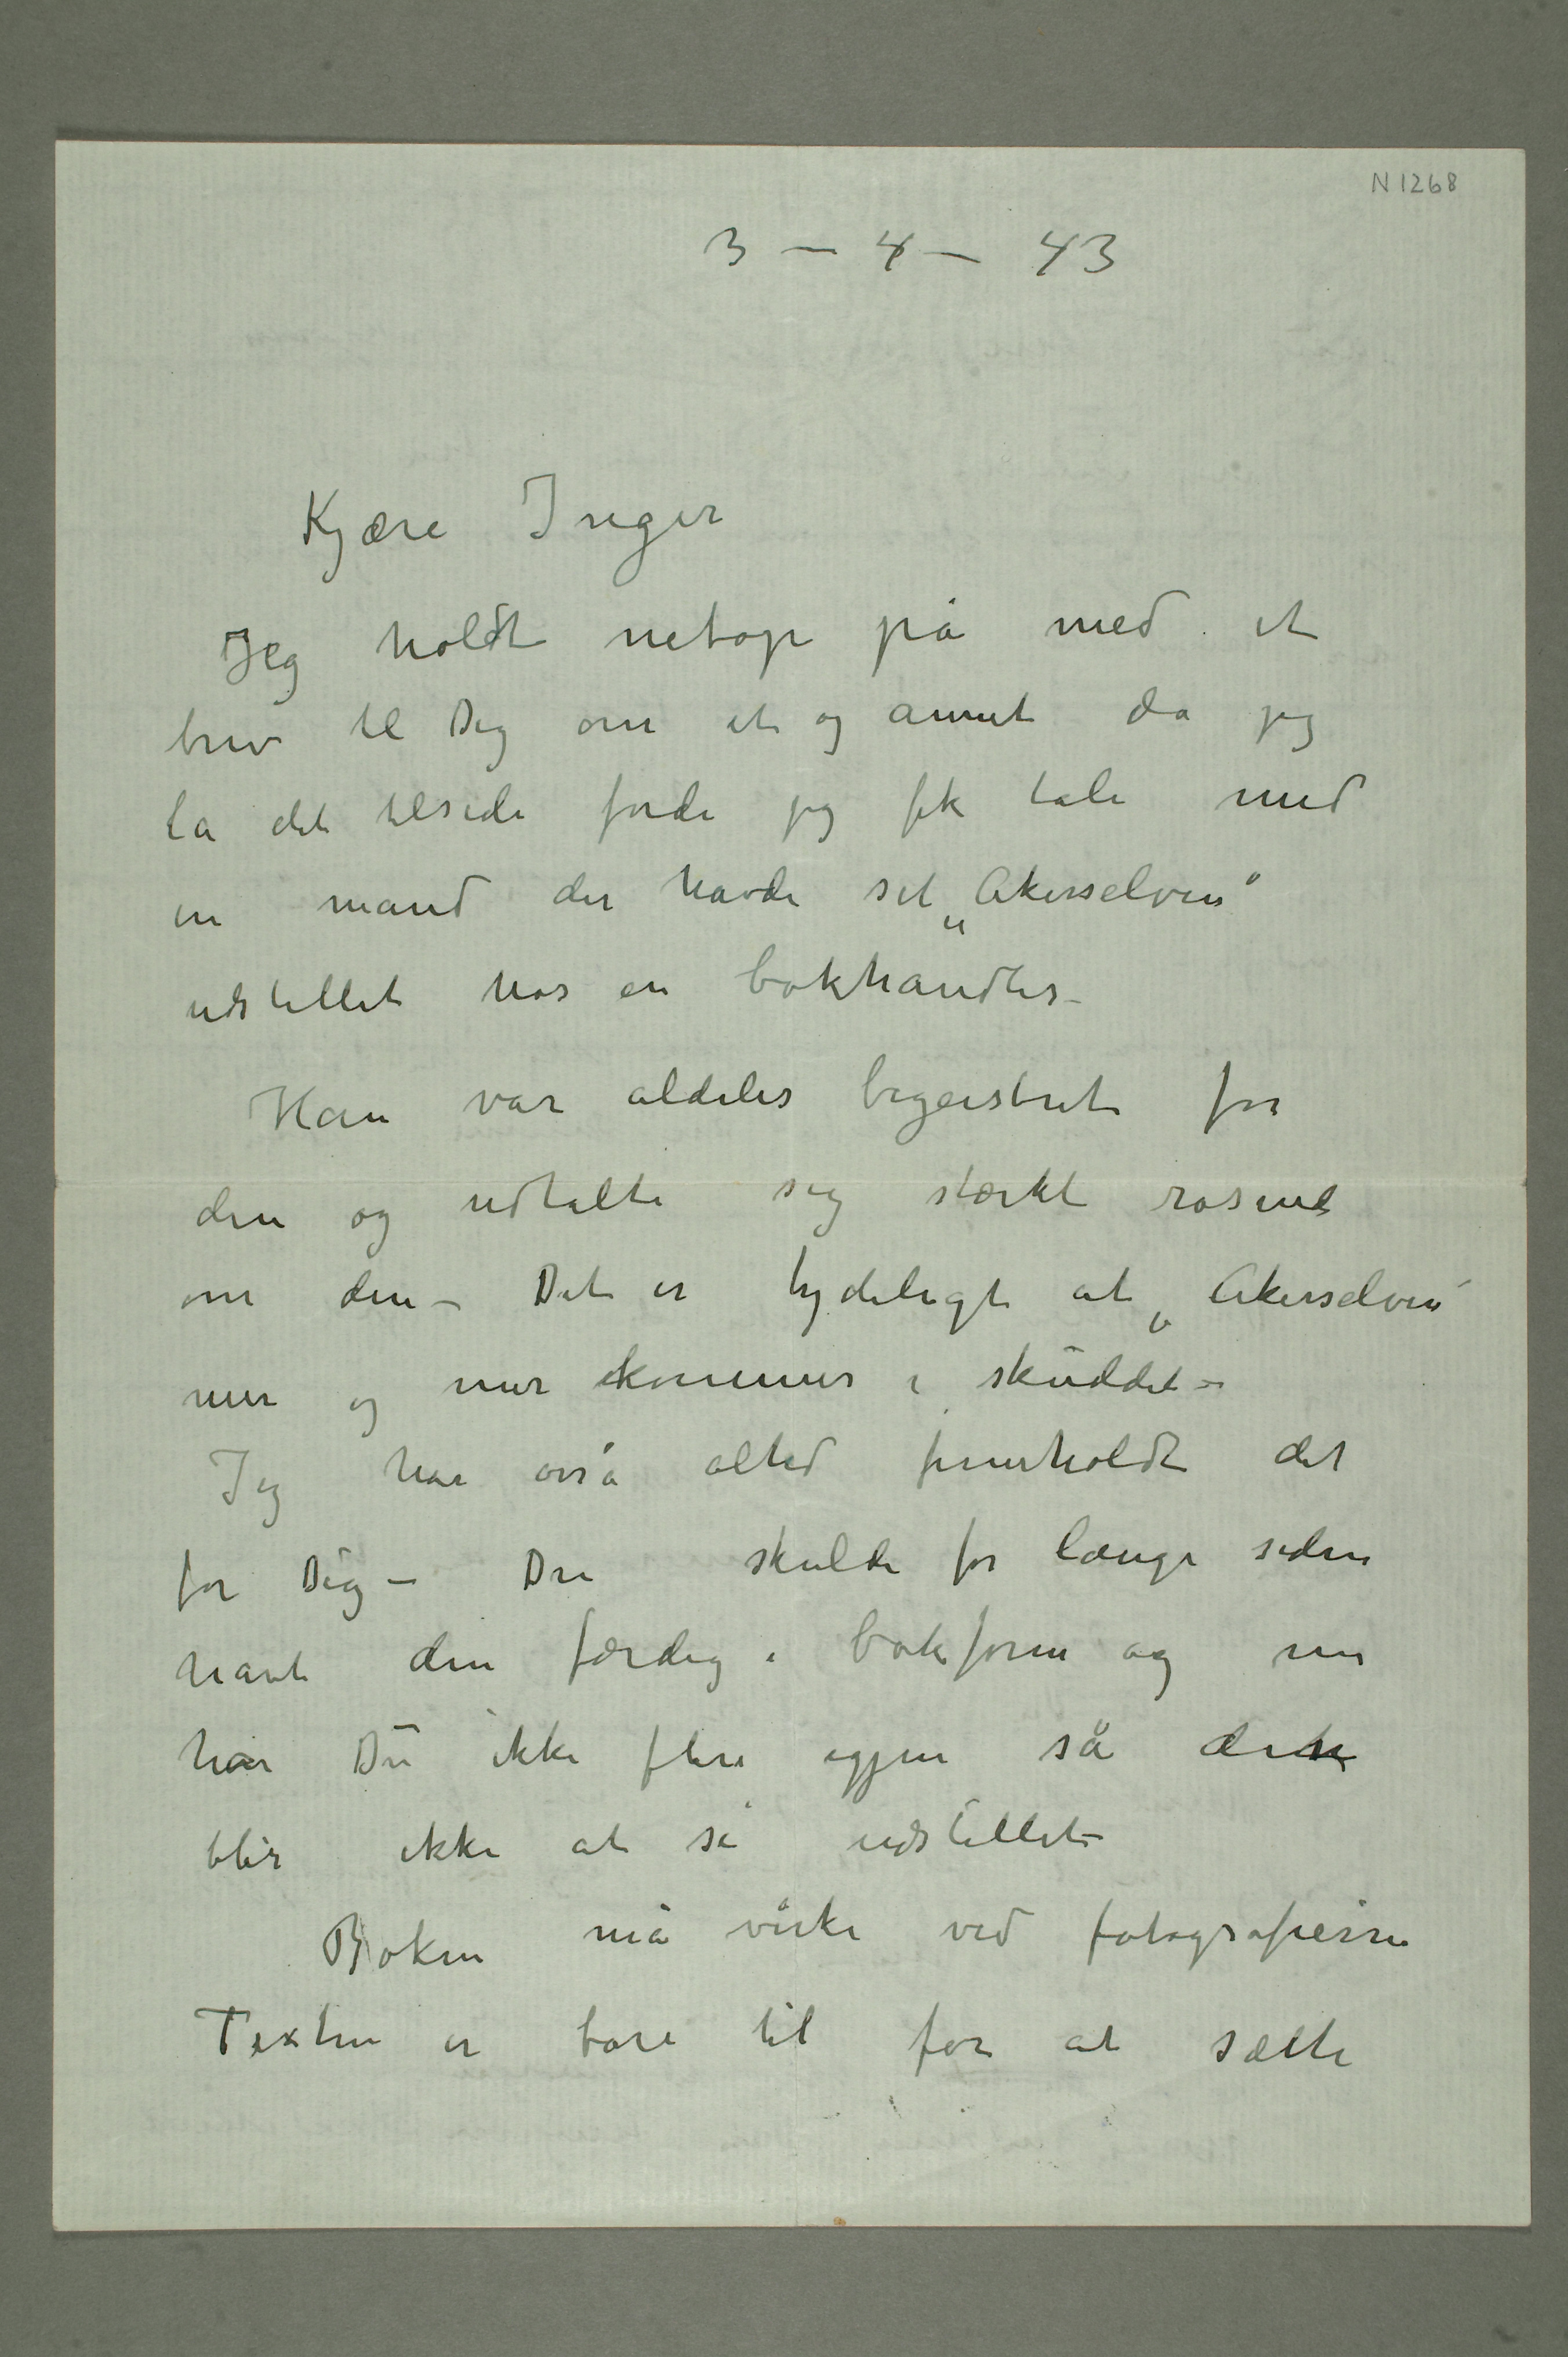 N 1268
3 – 4 – 43
Kjære Inger
Jeg holdt netop på med et
brev til Dig om et og annet da jeg
la det tilside fordi jeg fik tale med
en mand der havde set „Akerselven“
udstillet hos en bokhandler –
Han var aldeles begeistret for
den og udtalte sig stærkt rosend
om den – Det er tydeligt at „Akerselven“
mer og mer kommer i skuddet –
Jeg har også altid fremholdt det
for Dig – Du skulde for længe siden
havt den færdig i bokform og nu
har Du ikke flere igjen så den
blir ikke at se udstillet –
Boken må virke ved fotografierne
Texten er bare til for at sætte